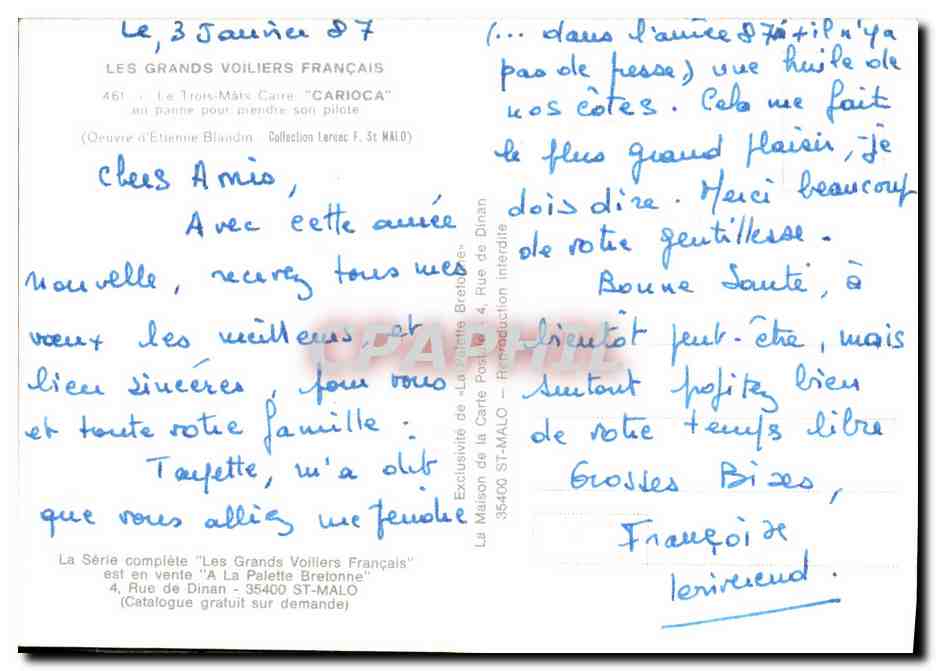 Le, 3 Janvier 87
LES GRANDS VOILIERS FRANÇAIS
461 - Le Trois-Mâts Carré "CARIOCA"
en panne pour prendre son pilote
(Oeuvre d'Etienne Blandin - Collection Lercec F. St MALO)
Chers Amis,
Avec cette année
nouvelle, recevez tous mes
vœux les meilleurs, et
bien sincères, pour vous
et toute votre famille.
m'a dit
que vous alliez me peindre
La Série complète "Les Grands Voiliers Français"
est en vente "A La Palette Bretonne"
4, Rue de Dinan - 35400 ST-MALO
(Catalogue gratuit sur demande)
Exclusivité de «La Palette Bretonne»
La Maison de la Carte Postale 4, Rue de Dinan
35400 ST-MALO — Reproduction interdite
CPAPHIL
(... dans l'année 87 il n'y a
pas de presse,) une huile de
nos côtes. Cela me fait
le plus grand plaisir, je
dois dire. Merci beaucoup
de votre gentillesse.
Bonne Santé, à
bientôt peut-être, mais
surtout profitez bien
de votre temps libre
Grosses Bises,
Françoise